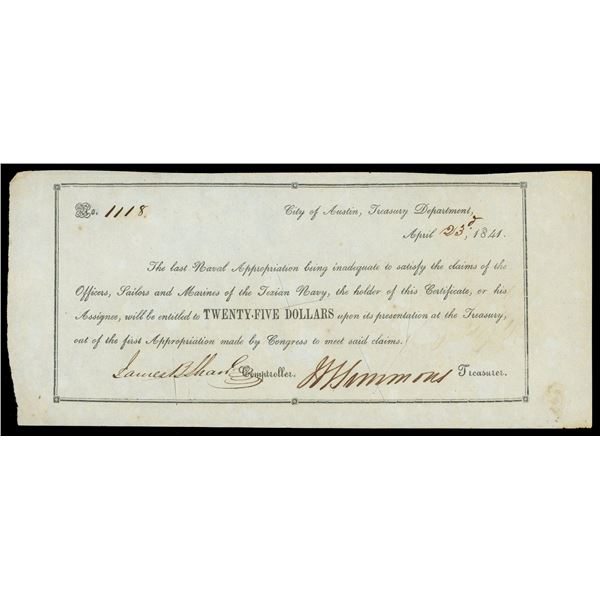 No. 1118. City of Austin, Treasury Department,
April 23d, 1841.
The last Naval Appropriation being inadequate to satisfy the claims of the
Officers, Sailors and Marines of the Texian Navy, the holder of this Certificate, or his
Assignee, will be entitled to TWENTY-FIVE DOLLARS upon its presentation at the Treasury,
out of the first Appropriation made by Congress to meet said claims.
James B Shaw Comptroller. Simmons Treasurer.